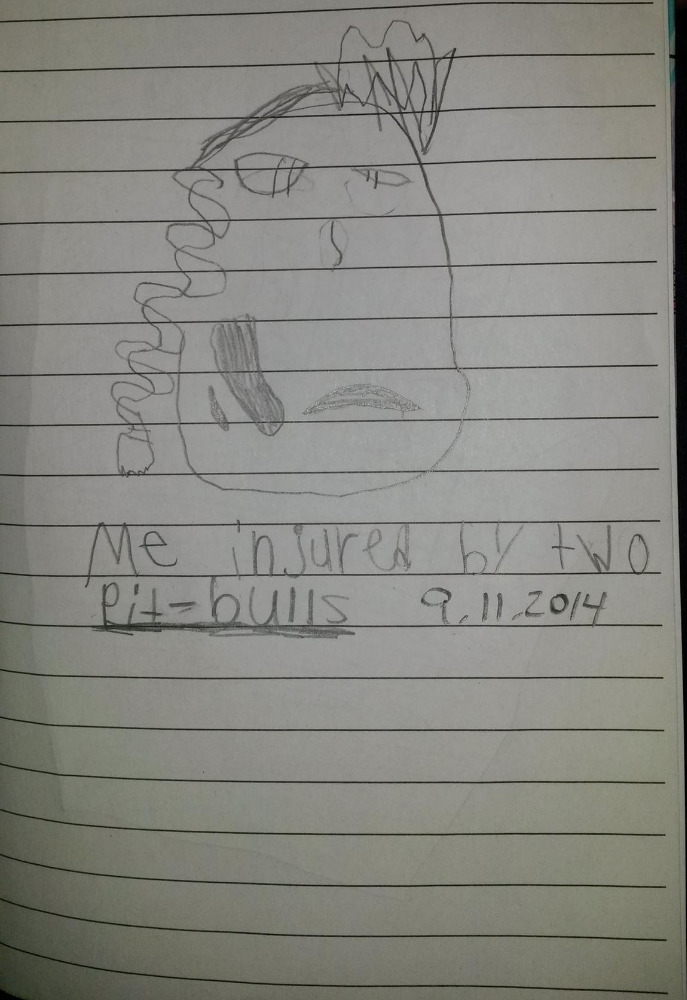 Me injured by two
Pit-bulls 9.11.2014